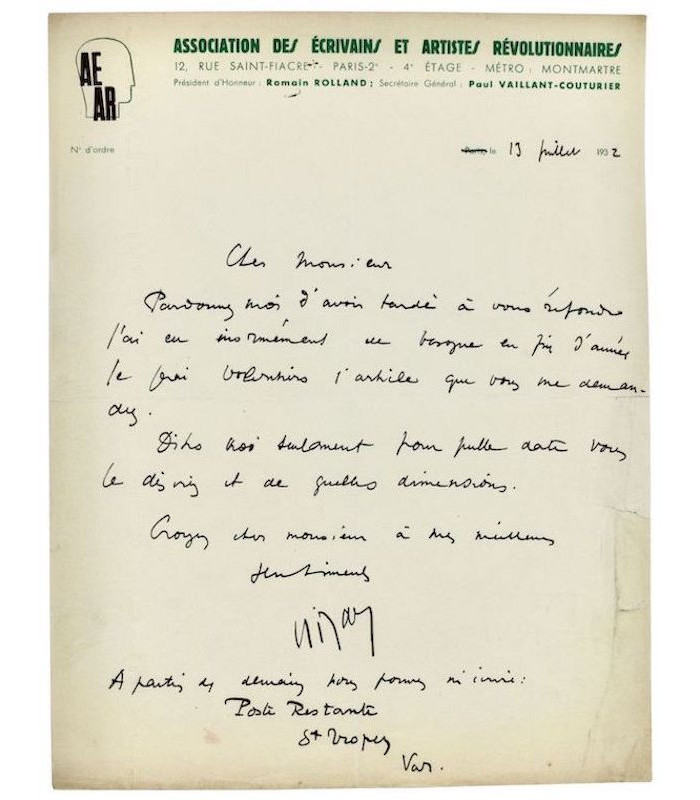 AE
AR
ASSOCIATION DES ÉCRIVAINS ET ARTISTES RÉVOLUTIONNAIRES
12, RUE SAINT-FIACRE - PARIS-2e - 4e ÉTAGE - MÉTRO : MONTMARTRE
Président d'Honneur : Romain ROLLAND ; Secrétaire Général : Paul VAILLANT-COUTURIER
N° d'ordre
Paris, le 13 juillet 1932
Cher Monsieur
Pardonnez moi d'avoir tardé à vous répondre
j'ai eu énormément de besogne en fin d'année
Je ferai volontiers l'article que vous me deman-
dez.
Dites moi seulement pour quelle date vous
le désirez et de quelles dimensions.
Croyez cher monsieur à mes meilleurs
sentiments
Nizan
A partir de demain vous pouvez m'écrire :
Poste Restante
St Tropez
Var.